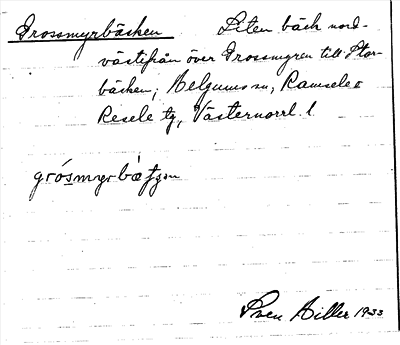 Grossmyrbäcken Liten bäck nord-
västifrån över Grossmyren till Stor-
bäcken; Helgums sn, Ramsele o
Resele tg, Västernorrl. l.
grósmyrbæ̀tʃən
Sven Hiller 1933